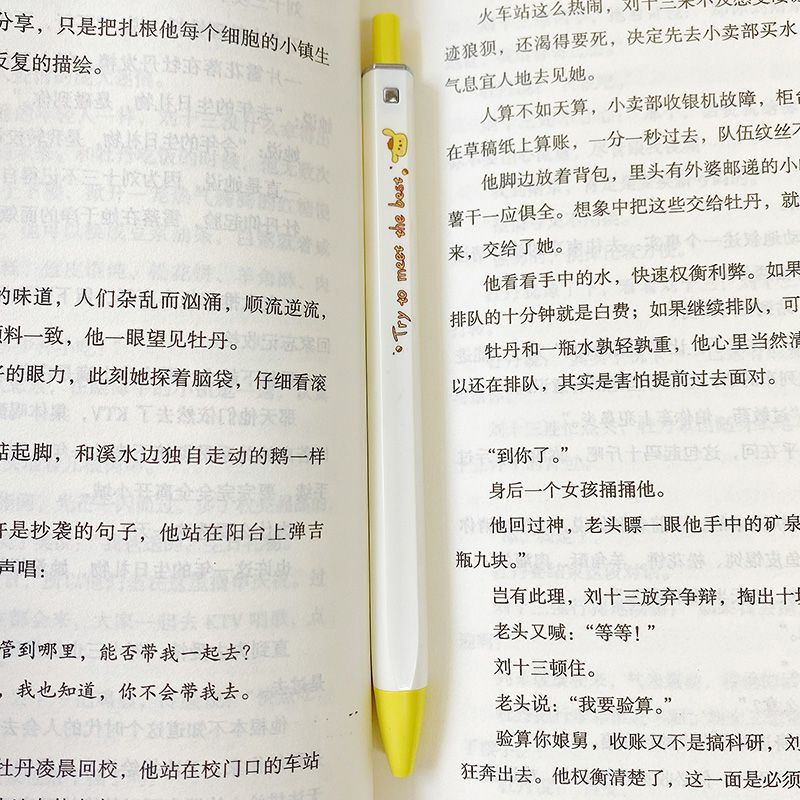 分享，只是把扎根他每个细胞的小镇生
反复的描绘。
的味道，人们杂乱而汹涌，顺流逆流，
颜料一致，他一眼望见牡丹。
子的眼力，此刻她探着脑袋，仔细看滚
站起脚，和溪水边独自走动的鹅一样
开是抄袭的句子，他站在阳台上弹吉
声唱：
管到哪里，能否带我一起去？
，我也知道，你不会带我去。
牡丹凌晨回校，他站在校门口的车站
Try to meet the best
火车站这么热闹，刘十三
迹狼狈，还渴得要死，决定先去小卖部买水
气息宜人地去见她。
人算不如天算，小卖部收银机故障，柜台
在草稿纸上算账，一分一秒过去，队伍纹丝不
他脚边放着背包，里头有外婆邮递的小
薯干一应俱全。想象中把这些交给牡丹，就
来，交给了她。
他看看手中的水，快速权衡利弊。如果
排队的十分钟就是白费；如果继续排队，可
牡丹和一瓶水孰轻孰重，他心里当然清
以还在排队，其实是害怕提前过去面对。
“到你了。”
身后一个女孩捅捅他。
他回过神，老头瞟一眼他手中的矿泉
瓶九块。”
岂有此理，刘十三放弃争辩，掏出十块
老头又喊：“等等！”
刘十三顿住。
老头说：“我要验算。”
验算你娘舅，收账又不是搞科研，刘
狂奔出去。他权衡清楚了，这一面是必须